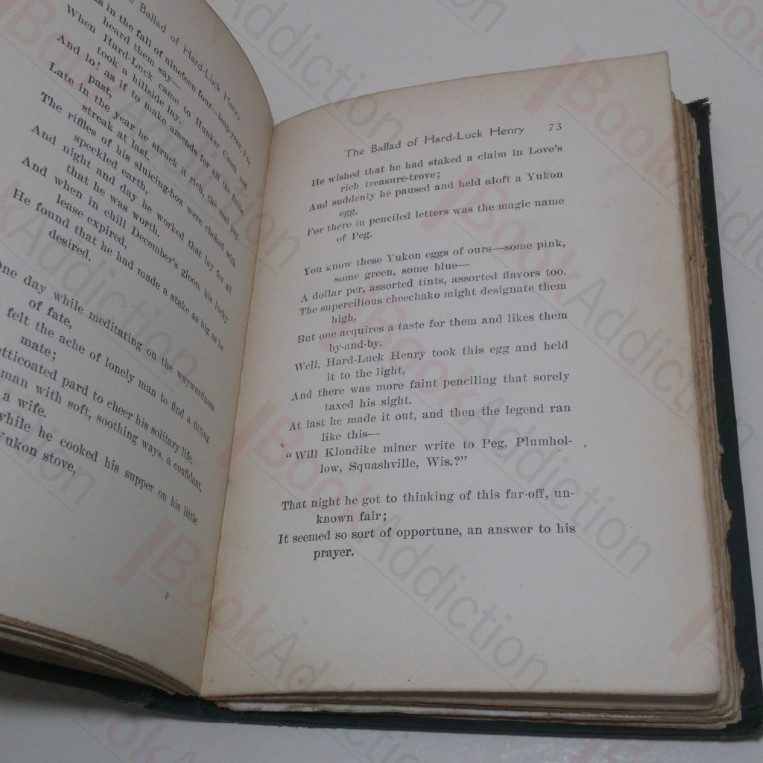 The Ballad of Hard-Luck Henry
in the fall of nineteen four
heard them say,
When Hard-Luck came to Hunker Creek and
took a hillside lay.
And lo! as if to make amends for all the futile
past,
Late in the year he struck it rich, the real pay-
streak at last.
The riffles of his sluicing-box were choked with
speckled earth,
And night and day he worked that lay for all
that he was worth.
And when in chill December's gloom his lucky
lease expired,
He found that he had made a stake as big as he
desired.
One day while meditating on the waywardness
of fate,
felt the ache of lonely man to find a fitting
mate;
petticoated pard to cheer his solitary life,
man with soft, soothing ways, a confidant,
a wife.
while he cooked his supper on his little
Yukon stove,
The Ballad of Hard-Luck Henry 73
He wished that he had staked a claim in Love's
rich treasure-trove;
And suddenly he paused and held aloft a Yukon
egg,
For there in penciled letters was the magic name
of Peg.
You know these Yukon eggs of ours—some pink,
some green, some blue—
A dollar per, assorted tints, assorted flavors too.
The supercilious cheechako might designate them
high,
But one acquires a taste for them and likes them
by-and-by.
Well, Hard-Luck Henry took this egg and held
it to the light,
And there was more faint penciling that sorely
taxed his sight.
At last he made it out, and then the legend ran
like this—
"Will Klondike miner write to Peg, Plumhol-
low, Squashville, Wis.?"
That night he got to thinking of this far-off, un-
known fair;
It seemed so sort of opportune, an answer to his
prayer.
BookAddiction